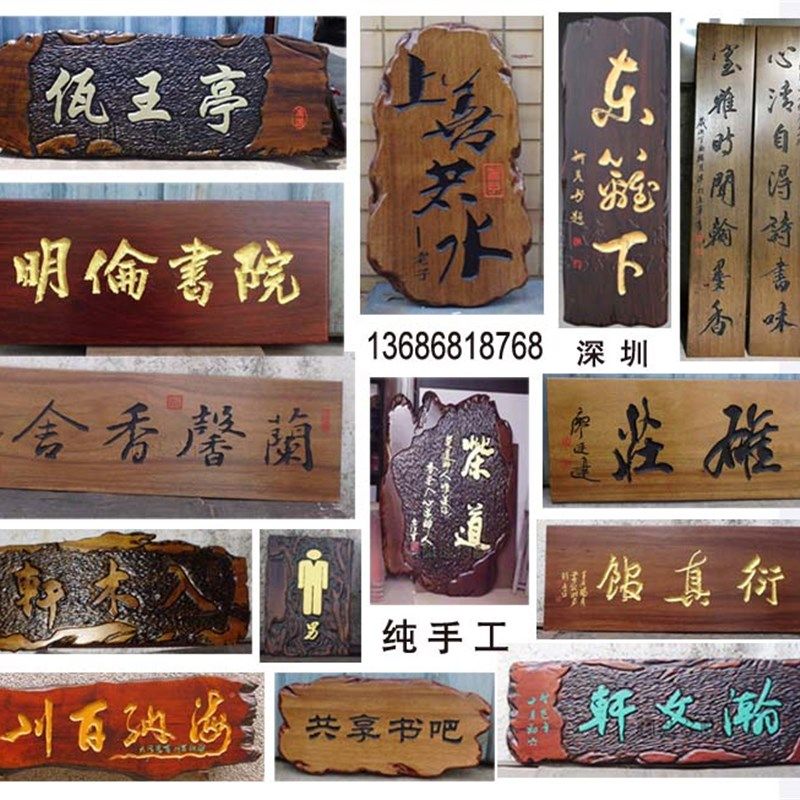 佤王亭
上善若水
老子
东籬下
心清自得詩書味
室雅時聞翰墨香
明倫書院
13686818768 深圳
蘭馨香舍
茶道
雅莊
入木軒
男
衍真館
纯手工
海納百川
共享书吧
瀚文軒